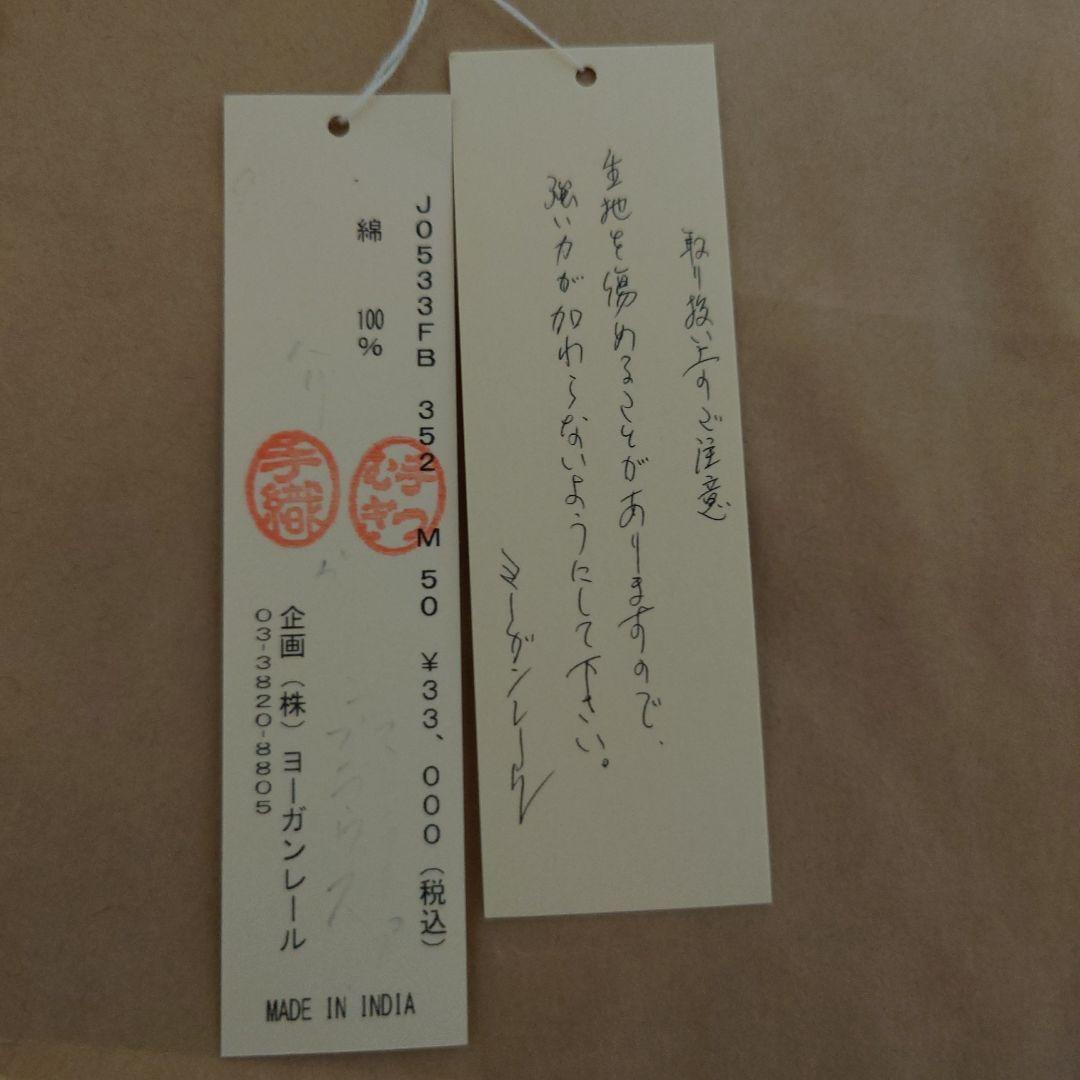 J0533FB 352 M 50 ¥33、000(税込)
綿 100%
手つむぎ
手織
企画(株)ヨーガンレール
03-3820-8805
MADE IN INDIA
取り扱い上のご注意
生地を傷めることがありますので、
強い力が加わらないようにして下さい。
ヨーガンレール